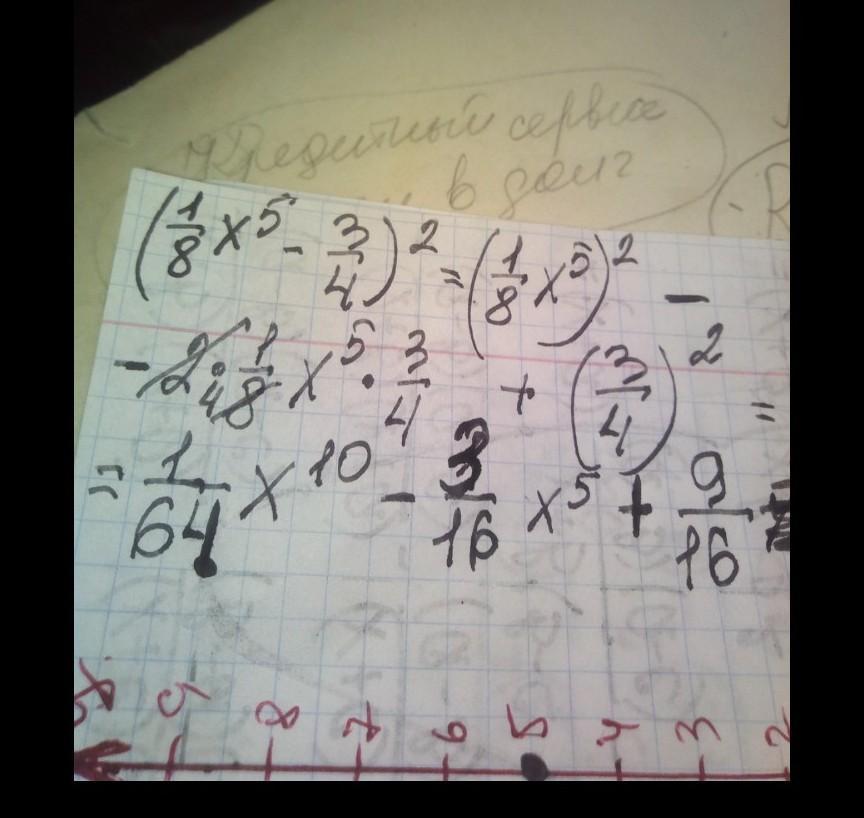 Кредитный сервис
в долг
(1/8 x^5 - 3/4)^2 = (1/8 x^5)^2 -
- 2 · 1/8 x^5 · 3/4 + (3/4)^2 =
4
= 1/64 x^10 - 3/16 x^5 + 9/16
x 9 8 7 6 5 4 3 2